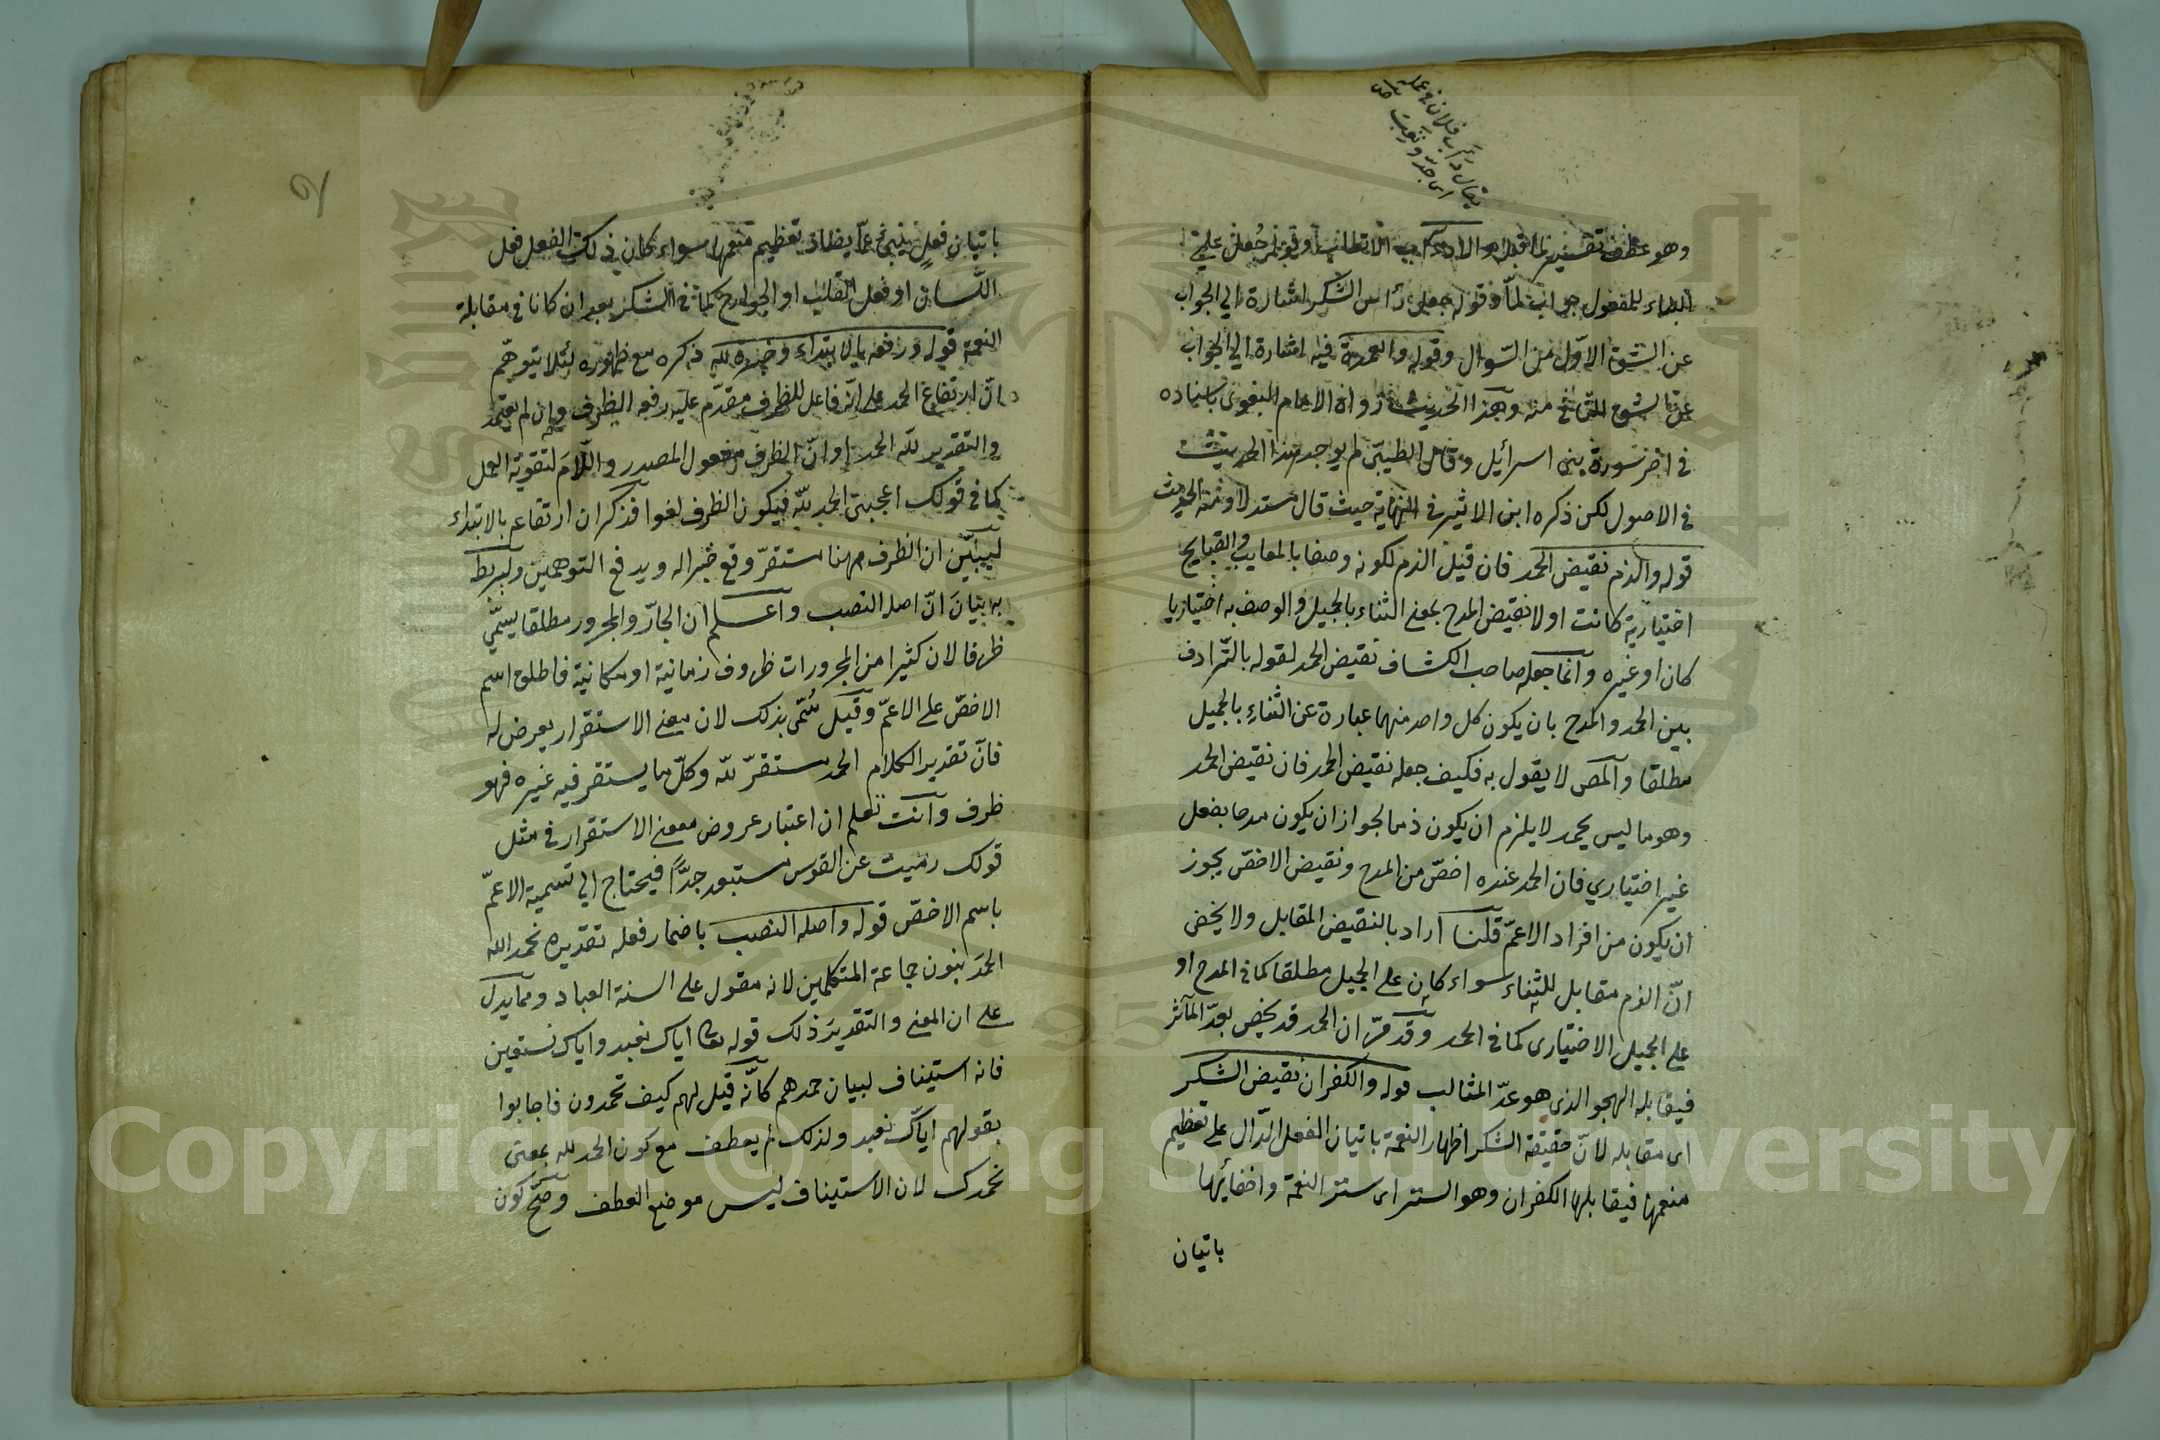 يقال دأب فلان في عمله
اى جدّ وتعب
وهو عطف تفسير لما قبله
البناء للمفعول جواب لمّا وقوله جعل رأس الشكر اشارة الى الجواب
عن الشق الاوّل من السّوال وقوله والعمدة فيه اشارة الى الجواب
عن الشق الثانى منه وهذا الحديث رواه الامام البغوى باسناده
فى اخر سورة بنى اسرائيل وقال الطيبىّ لم يوجد هذا الحديث
فى الاصول لكن ذكره ابن الاثير فى النهاية حيث قال
قوله والذم نقيض الحمد فان قيل الذم لكونه وصفا بالمعايب والقبايح
اختيارية كانت اولا نقيض المدح بمعنى الثناء بالجميل والوصف به اختياريا
كان او غيره وانّما جعله صاحب الكشاف نقيض الحمد لقوله بالتّرادف
بين الحمد والمدح بان يكون كل واحد منهما عبارة عن الثناء بالجميل
مطلقا والمص لا يقول به فكيف جعله نقيض الحمد فان نقيض الحمد
وهو ما ليس بحمد لا يلزم ان يكون ذما لجواز ان يكون مدحا بفعل
غير اختياري فان الحمد عنده اخصّ من المدح ونقيض الاخصّ يجوز
ان يكون من افراد الاعمّ قلنا اراد بالنقيض المقابل ولا يخفى
انّ الذم مقابل للثناء سواء كان على الجميل مطلقا كما فى المدح او
على الجميل الاختيارى كما فى الحمد وقد مرّ ان الحمد قد يخص بعدّ المآثر
فيقابله الهجو الذى هو عدّ المثالب قوله والكفران نقيض الشكر
اى مقابله لانّ حقيقة الشكر اظهار النعمة باتيان الفعل الدّال على تعظيم
منعمها فيقابلها الكفران وهو الستر اى ستر النعمة واخفائها
باتيان
باتيان فعل ينبئ عمّا يضاد تعظيم منعمها سواء كان ذلك الفعل فعل
اللّسان او فعل القلب او الجوارح كما فى الشكر بعد ان كانا فى مقابلة
النعمة قوله ورفعه بالابتداء وخبره لله ذكره مع ظهوره لئلا يتوهّم
انّ ارتفاع الحمد على انّه فاعل للظرف مقدّم عليه رفعه الظرف وان لم يعتمد
والتقدير لله الحمد او انّ الظرف مفعول المصدر واللّام لتقوية العمل
كما فى قولك اعجبنى الحمد لله فيكون الظرف لغوا فذكر ان ارتفاعه بالابتداء
ليبيّن ان الظرف ههنا مستقرّ وقع خبرا له ويدفع التوهمين وليربط
به بيان انّ اصله النصب واعلم ان الجارّ والمجرور مطلقا يسمّى
ظرفا لان كثيرا من المجرورات ظروف زمانية او مكانية فاطلق اسم
الاخصّ على الاعمّ وقيل سُمّى بذلك لان معنى الاستقرار يعرض له
فانّ تقدير الكلام الحمد مستقرّ لله وكلّ ما يستقر فيه غيره فهو
ظرف وانت تعلم ان اعتبار عروض معنى الاستقرار فى مثل
قولك رميت عن القوس مستبعد جدًّا فيحتاج الى تسمية الاعمّ
باسم الاخصّ قوله واصله النصب باضمار فعله تقديره نحمد الله
الحمد بنون جماعة المتكلمين لانه مقول على السنة العباد ومما يدل
على ان المعنى والتقدير ذلك قوله تعا اياك نعبد واياك نستعين
فانه استيناف لبيان حمدهم كانّه قيل لهم كيف تحمدون فاجابوا
بقولهم ايّاك نعبد ولذلك لم يعطف مع كون الحمد لله بمعنى
نحمدك لان الاستيناف ليس موضع العطف وصحّ كون
Copyright © King Saud University